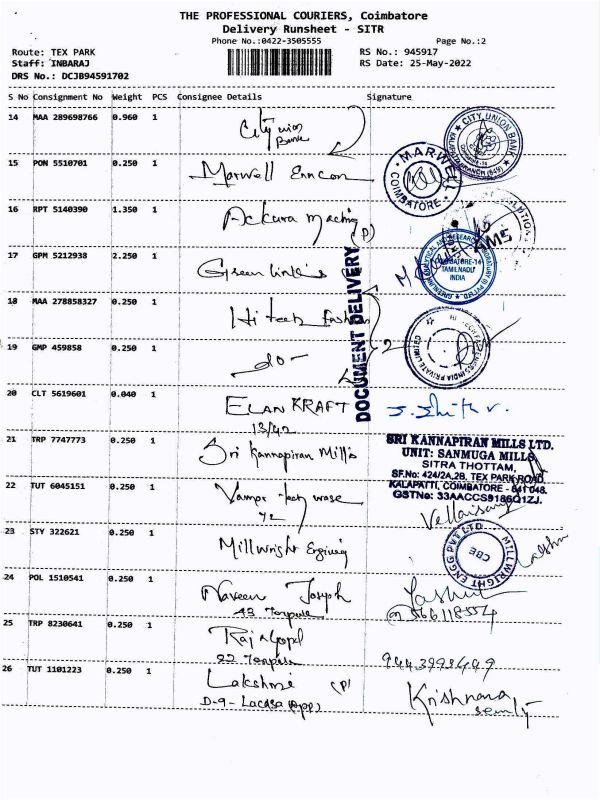 THE PROFESSIONAL COURIERS, Coimbatore
Delivery Runsheet - SITR
Phone No.:0422-3505555 Page No.:2
Route: TEX PARK RS No.: 945917
Staff: INBARAJ RS Date: 25-May-2022
DRS No.: DCJB94591702
S No Consignment No Weight PCS Consignee Details Signature
14 MAA 289698766 0.960 1 City union
Bank
CITY UNION BANK
15 PON 5510701 0.250 1 Marwell Enncon
MARWELL
COIMBATORE
16 RPT 5140390 1.350 1 Ackura maching (P)
AMS
17 GPM 5212938 2.250 1 Green link's
COIMBATORE-14
TAMILNADU
INDIA
DOCUMENT DELIVERY
18 MAA 278858327 0.250 1 Hi tech fashion
19 GMP 459858 0.250 1 do - 2
20 CLT 5619601 0.040 1 ELAN KRAFT
13/42
21 TRP 7747773 0.250 1 Sri Kannapiran Mills
SRI KANNAPIRAN MILLS LTD.
UNIT: SANMUGA MILLS
SITRA THOTTAM,
SF.No: 424/2A,2B, TEX PARK ROAD
KALAPATTI, COIMBATORE - 641 048.
GSTNo: 33AACCS9186Q1ZJ.
22 TUT 6045151 0.250 1
42
23 STY 322621 0.250 1 Millwright
MILLWRIGHT ENGG PVT LTD
CBE
24 POL 1510541 0.250 1 Naveen Joseph
25 TRP 8230641 0.250 1 Rajagopal
26 TUT 1101223 0.250 1 Lakshmi (P)
D-9-
Krishnana